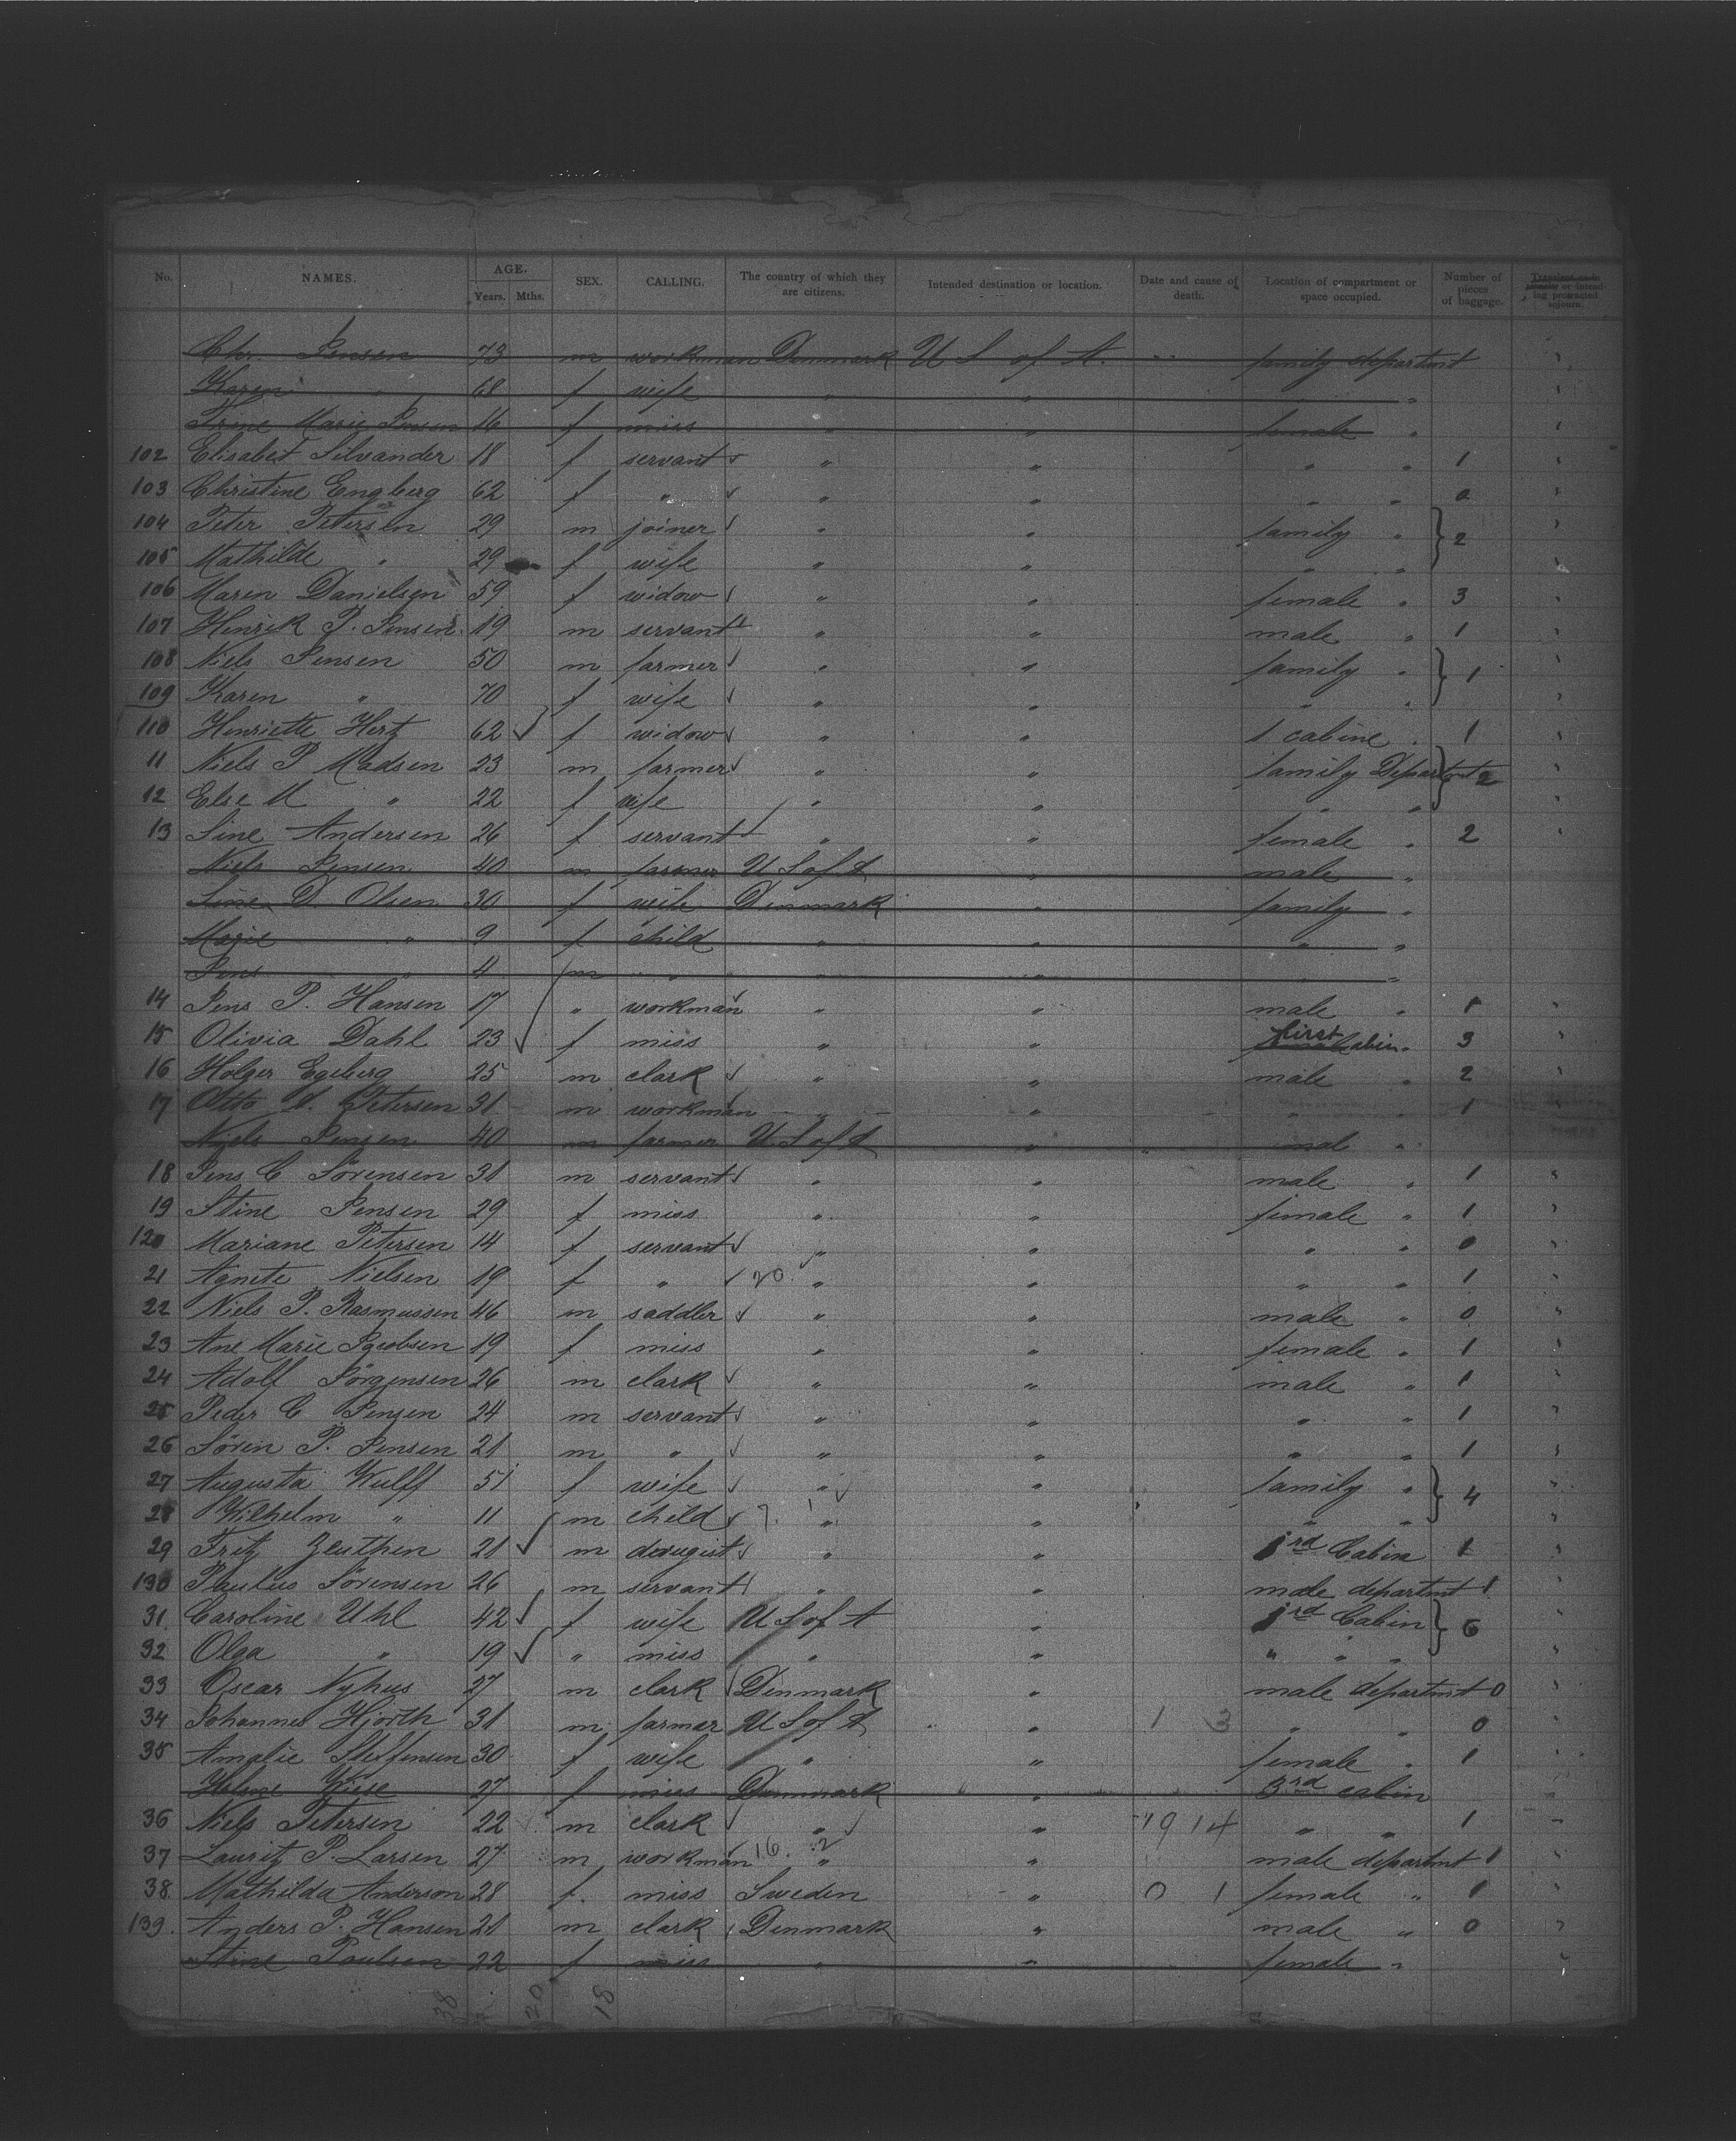 No. NAMES. AGE. Years. Mths. SEX. CALLING. The country of which they are citizens. Intended destination or location. Date and cause of death. Location of compartment or space occupied. Number of pieces of baggage. Transient or in transit or intending protracted sojourn.
Chr. Jensen 73 m workman Denmark U S of A. family departmt
Karen " 68 f wife " " "
Trine Marie Jensen 16 f miss " " female "
102 Elisabet Silvander 18 f servant " " " " 1
103 Christine Engberg 62 f " " " " " 0
104 Peter Petersen 29 m joiner " " family " 2
105 Mathilde " 29 f wife " " " "
106 Maren Danielsen 59 f widow " " female " 3
107 Henrik P. Jensen 19 m servant " " male " 1
108 Niels Jensen 50 m farmer " " family " 1
109 Karen " 70 f wife " " " "
110 Henriette Hertz 62 f widow " " 1 cabine " 1
11 Niels P Madsen 23 m farmer " " family Departmt 2
12 Else M " 22 f wife " " " "
13 Sine Andersen 26 f servant " " female " 2
Niels Jensen 40 m farmer U S of A " male "
Sine D. Olsen 30 f wife Denmark " family "
Marie " 9 f child " " " "
Jens " 4 m " " " "
14 Jens P. Hansen 17 " workman " " male " 1
15 Olivia Dahl 23 f miss " " first Cabin " 3
16 Holger Egeberg 25 m clark " " male " 2
17 Otto Petersen 31 m workman " " " " 1
Niels Jensen 40 m farmer U S of A " mal "
18 Jens C Sörensen 31 m servant " " male " 1
19 Stine Jensen 29 f miss " " female " 1
120 Mariane Petersen 14 f servant " " " " 0
21 Agnete Nielsen 19 f " 20. " " " " 1
22 Niels P. Rasmussen 46 m saddler " " male " 0
23 Ane Marie Jacobsen 19 f miss " " female " 1
24 Adolf Jörgensen 26 m clark " " male " 1
25 Peder C Jensen 24 m servant " " " " 1
26 Sören P. Jensen 21 m " " " " " 1
27 Augusta Wulff 51 f wife " " family " 4
28 Wilhelm " 11 m child 7. 1 " " " "
29 Fritz Zeuthen 21 m drougist " " 1rd Cabin 1
130 Paulus Sörensen 26 m servant " " male departmt 1
31 Caroline Uhl 42 f wife U S of A " 1rd Cabin 6
32 Olga " 19 " miss " " " " "
33 Oscar Nyhus 27 m clark Denmark " male departmt 0
34 Johannes Hjorth 31 m farmer U S of A " 1 3 " " 0
35 Amalie Steffensen 30 f wife " " female " 1
Helene Wiese 27 f miss Denmark " 3rd cabin
36 Niels Petersen 22 m clark " " 19 14 " " 1
37 Lauritz P. Larsen 27 m workman 16. 2 " " male departmt 1
38. Mathilda Anderson 28 f. miss Sweden " 0 1 female " 1
139. Anders P. Hansen 21 m clark Denmark " male " 0
Stine Poulsen 22 f miss " " female "
38 20 18